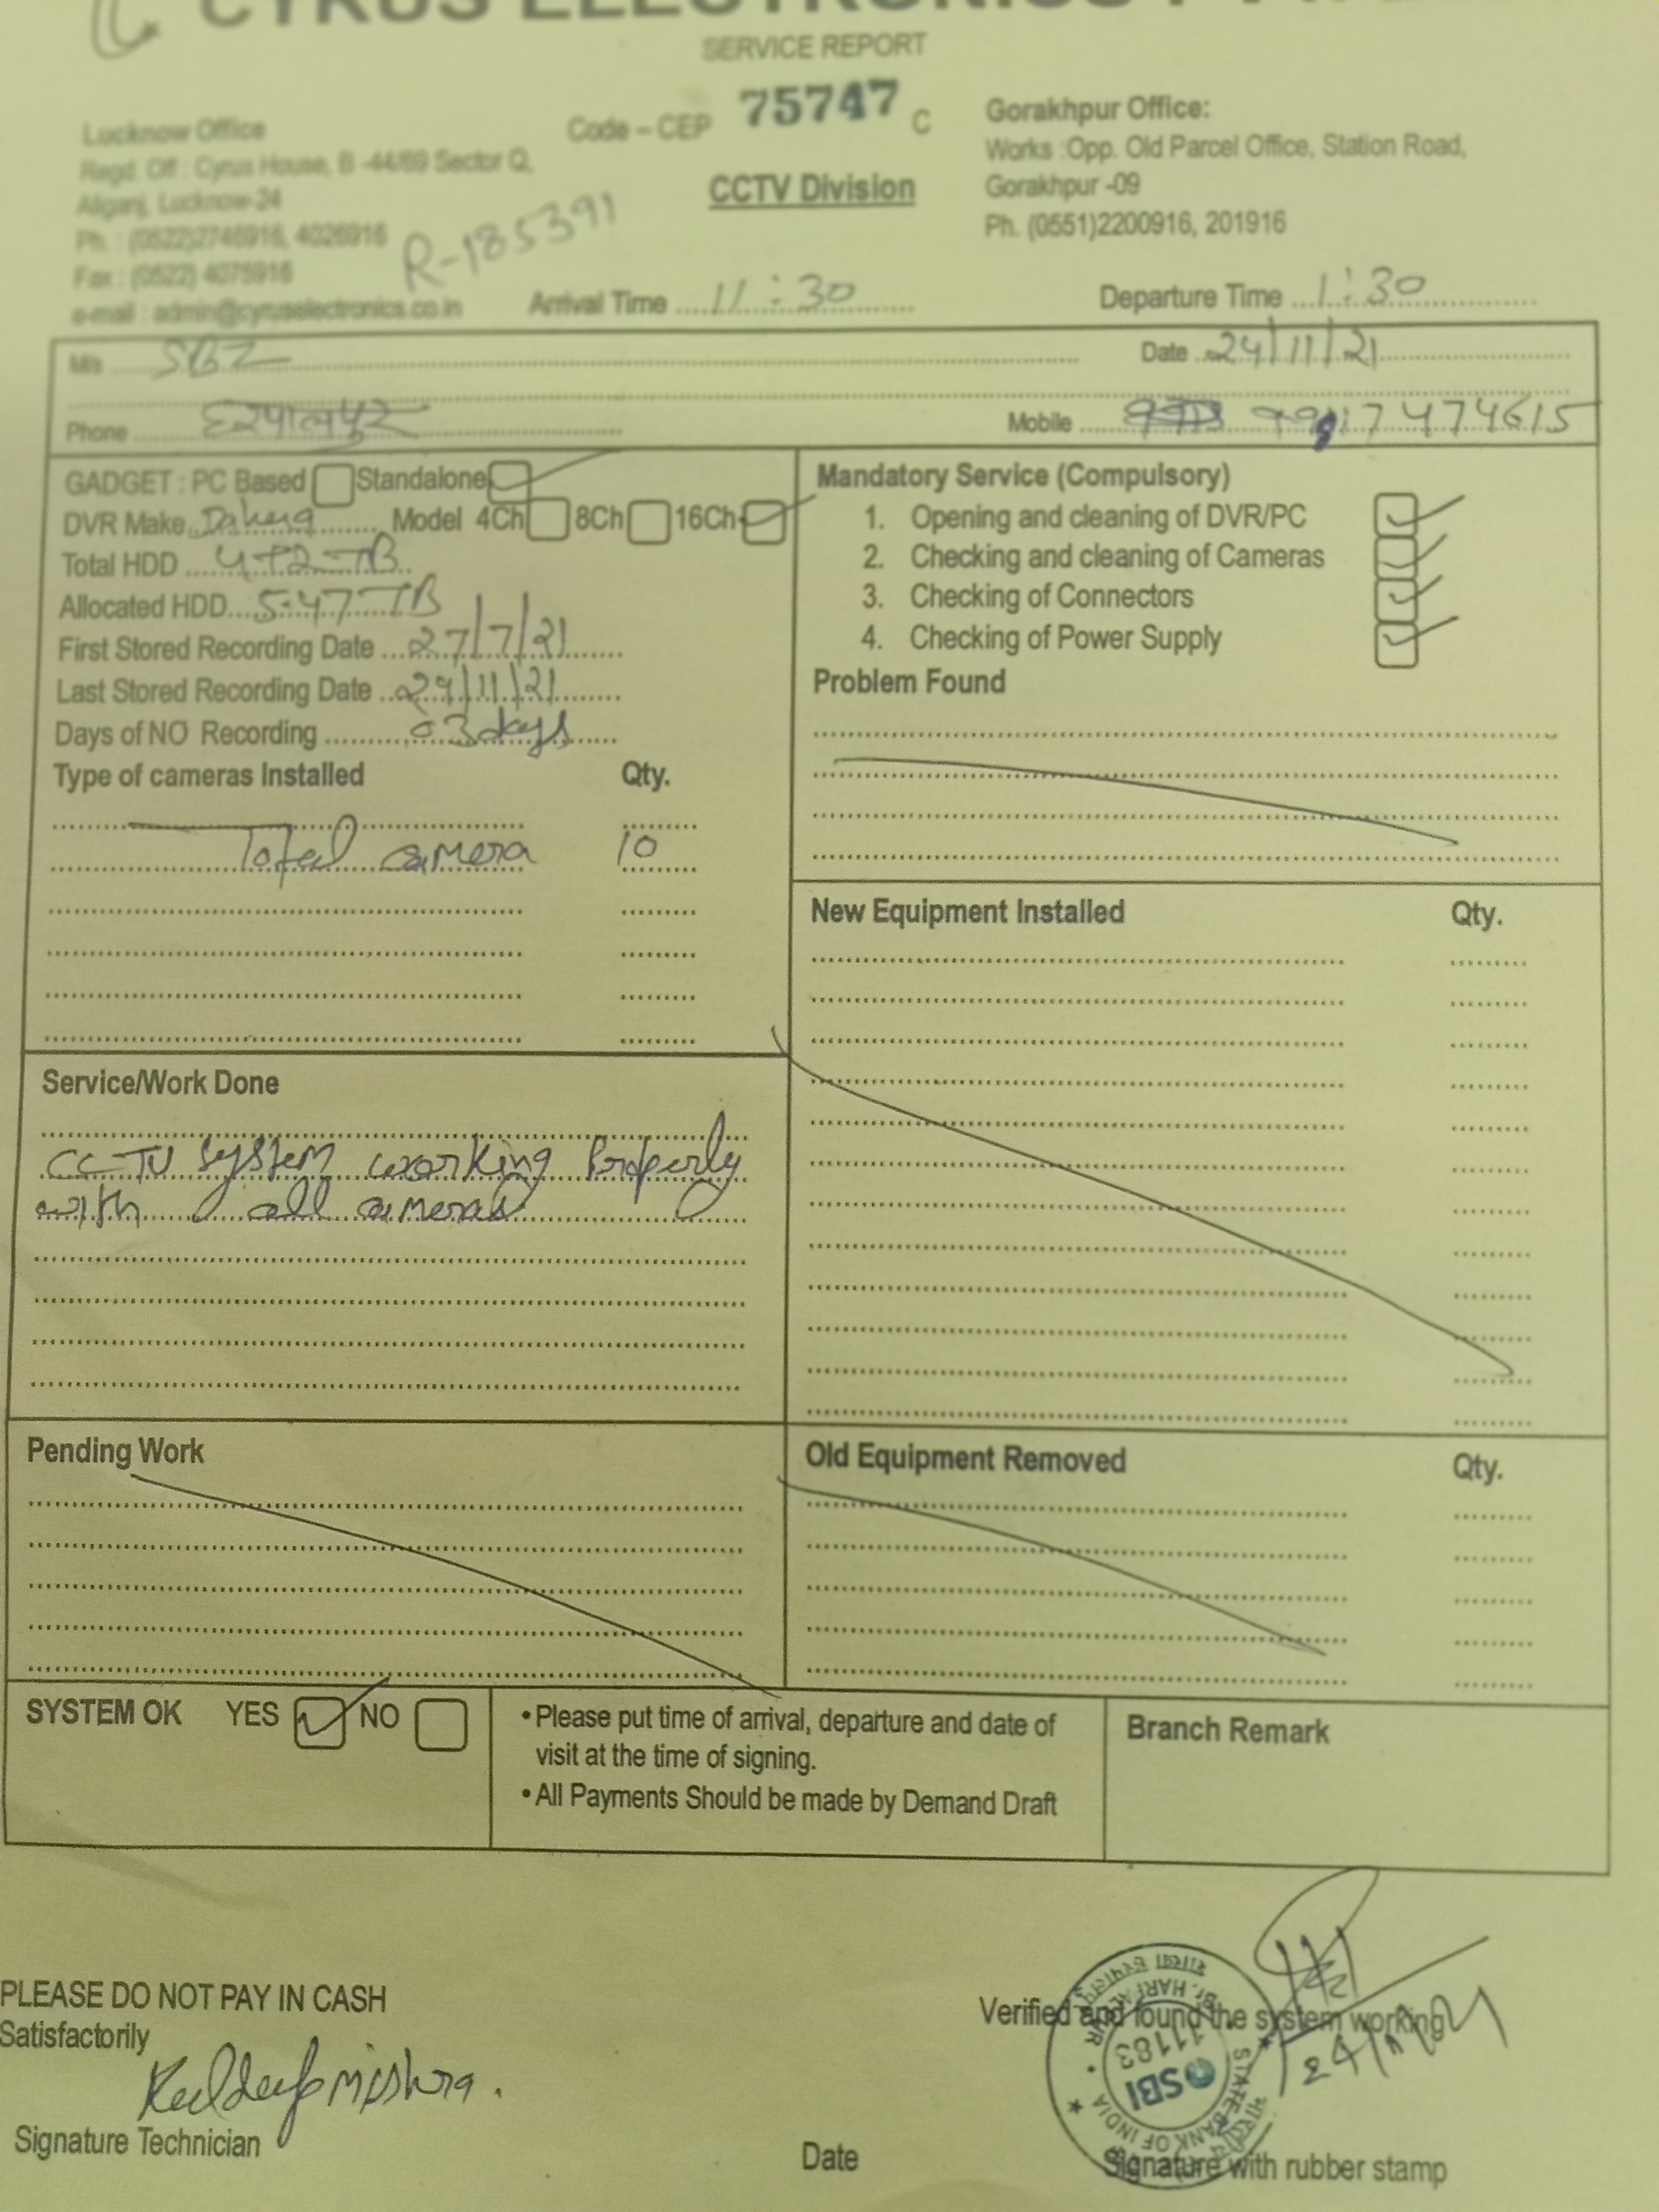 CYRUS ELECTRONICS
SERVICE REPORT
Code – CEP 75747 C
Lucknow Office
Regd. Off : Cyrus House, B -44/69 Sector Q,
Aliganj, Lucknow-24
Ph. : (0522)2746916, 4026916
Fax : (0522) 4075916
e-mail : admin@cyruselectronics.co.in
R-185391
CCTV Division
Gorakhpur Office:
Works :Opp. Old Parcel Office, Station Road,
Gorakhpur -09
Ph. (0551)2200916, 201916
Arrival Time 11:30
Departure Time 1:30
M/s SBI
Date 24/11/21
Phone हरपालपुर
Mobile
GADGET : PC Based Standalone
DVR Make Dahua Model 4Ch 8Ch 16Ch
Total HDD 4+2 TB
Allocated HDD 5.47 TB
First Stored Recording Date 27/7/21
Last Stored Recording Date 24/11/21
Days of NO Recording 03 days
Type of cameras Installed Qty.
Total camera 10
Mandatory Service (Compulsory)
1. Opening and cleaning of DVR/PC
2. Checking and cleaning of Cameras
3. Checking of Connectors
4. Checking of Power Supply
Problem Found
New Equipment Installed Qty.
Service/Work Done
CCTV System working Properly
with all cameras
Pending Work
Old Equipment Removed Qty.
SYSTEM OK YES NO
• Please put time of arrival, departure and date of
visit at the time of signing.
• All Payments Should be made by Demand Draft
Branch Remark
PLEASE DO NOT PAY IN CASH
Satisfactorily
Kuldeep Mishra.
Signature Technician
Date
Verified and found the system working
24/11/21
STATE BANK OF INDIA
SBI
11183
Signature with rubber stamp